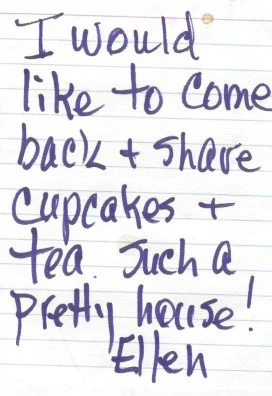 I would
like to come
back + share
cupcakes +
tea. Such a
pretty house!
Ellen